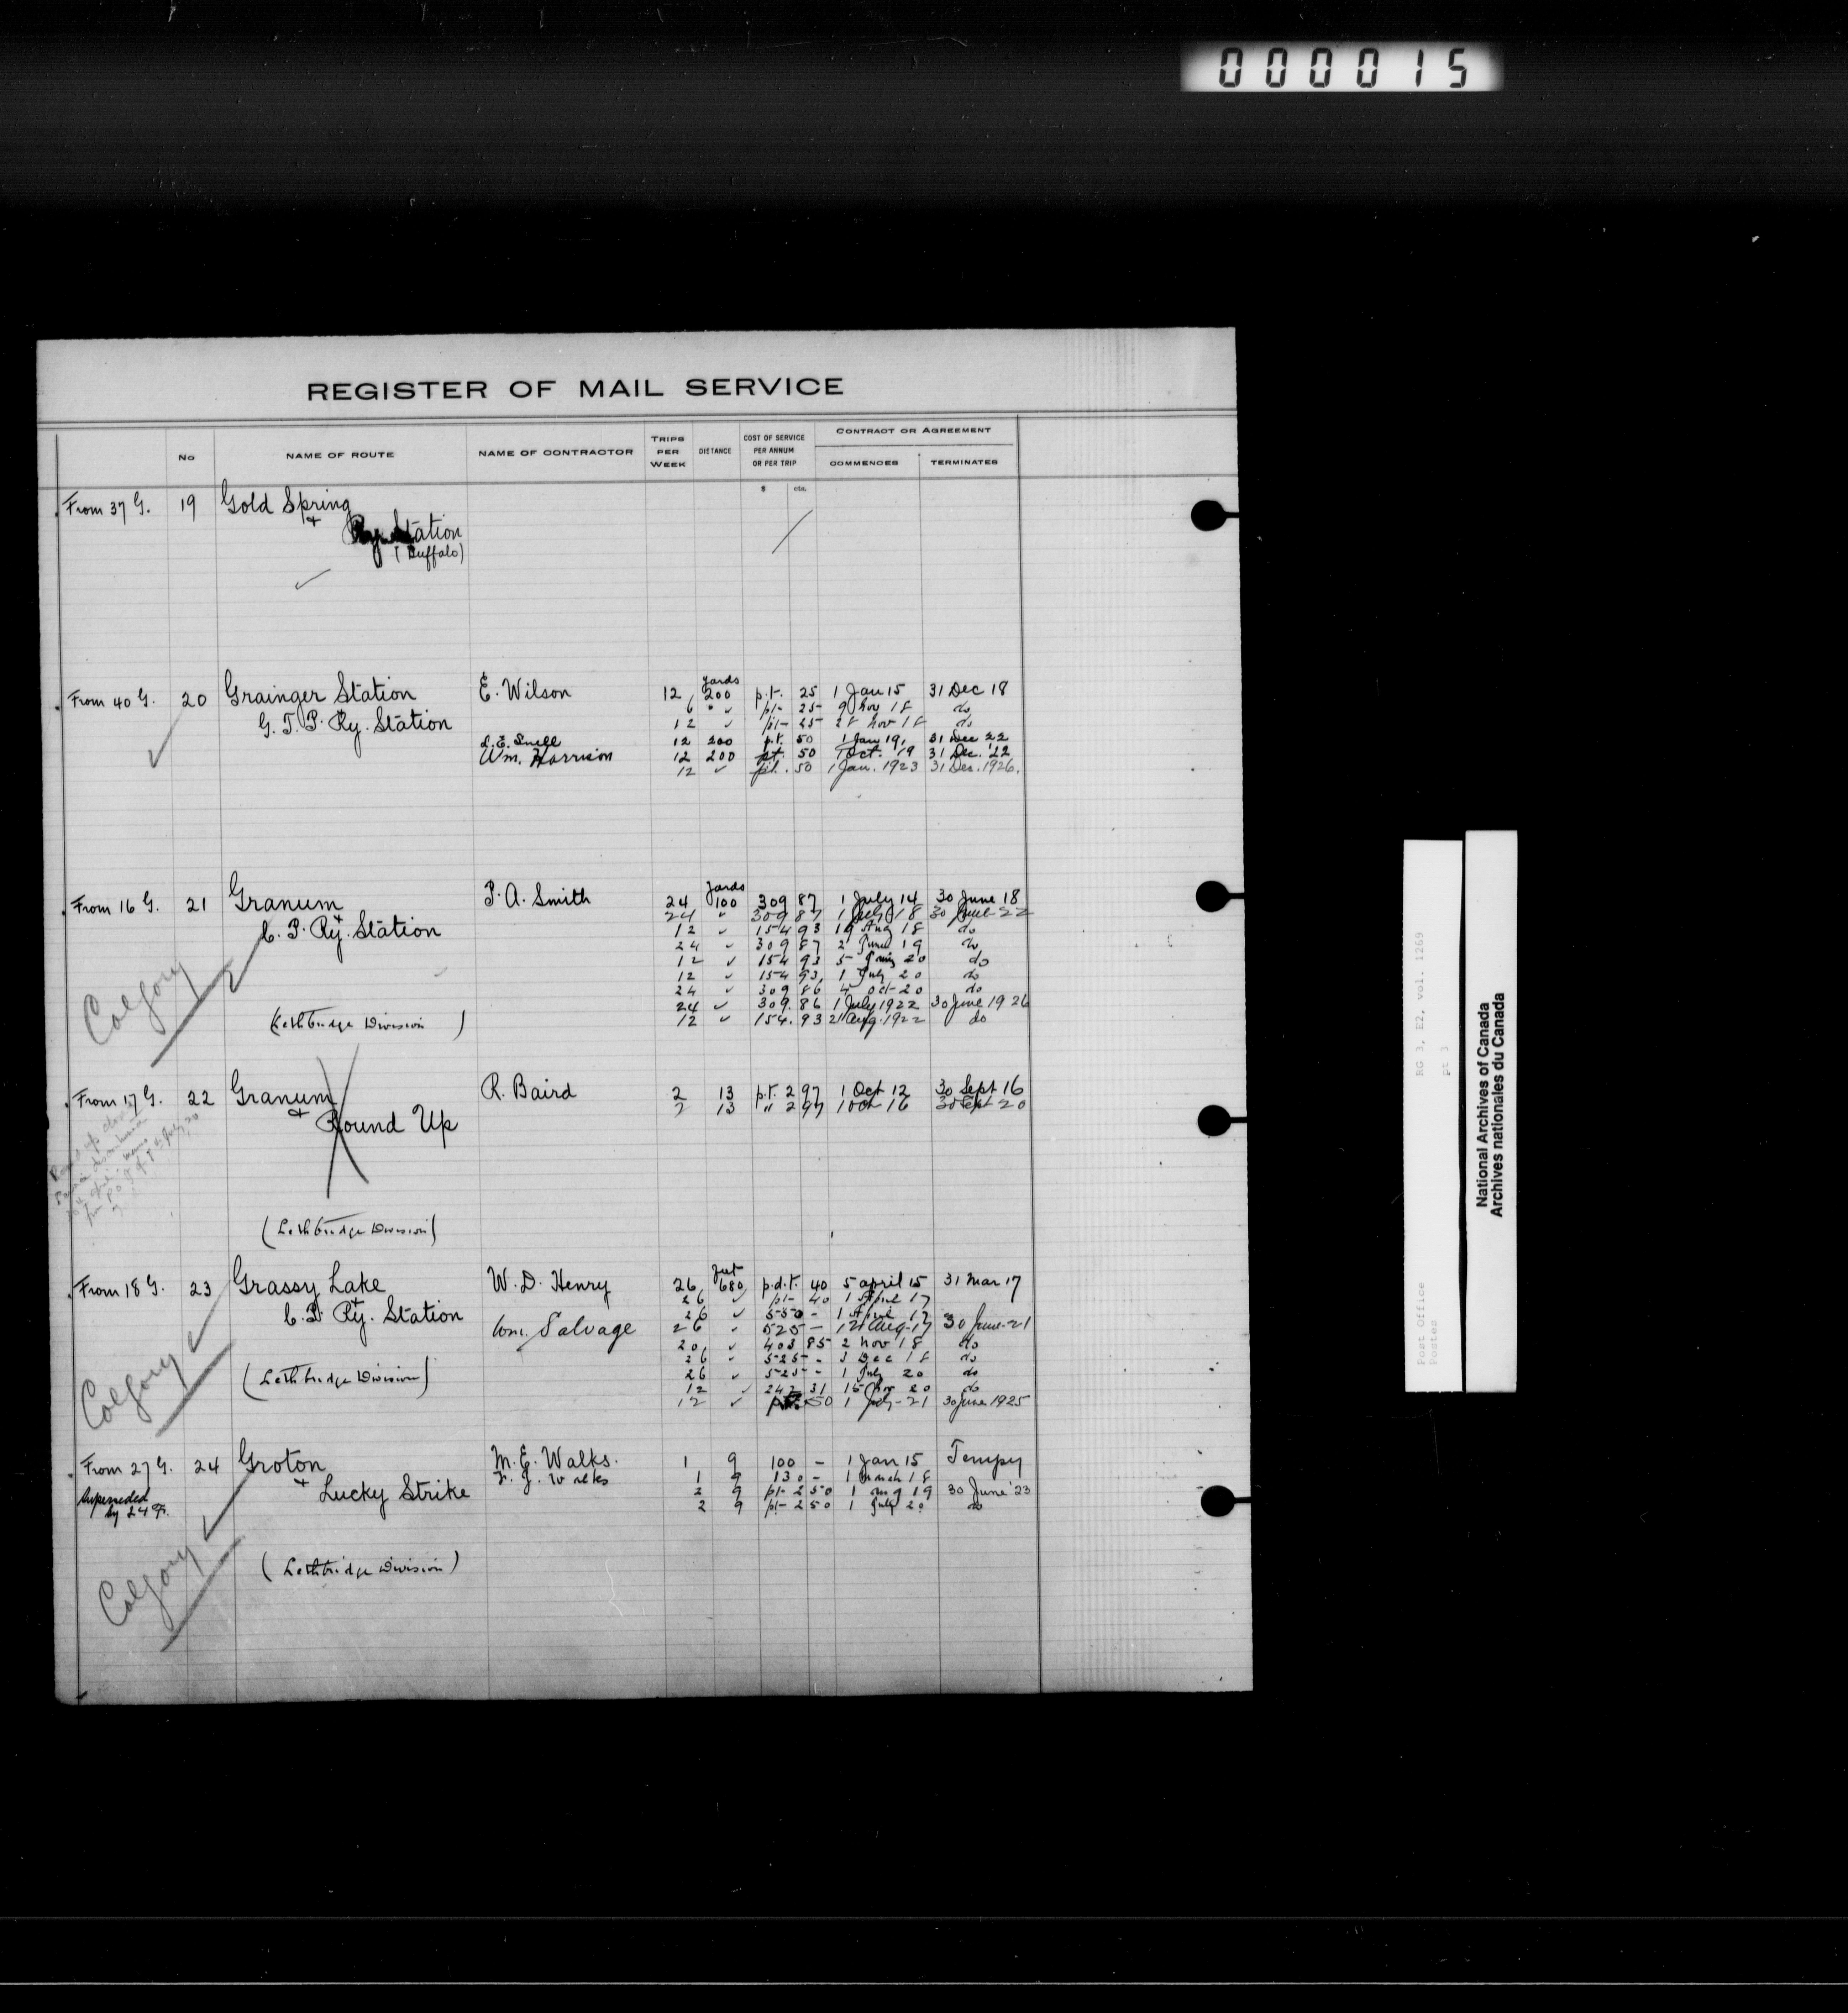 000015
REGISTER OF MAIL SERVICE
No NAME OF ROUTE NAME OF CONTRACTOR TRIPS PER WEEK DISTANCE COST OF SERVICE PER ANNUM OR PER TRIP CONTRACT OR AGREEMENT COMMENCES TERMINATES
$ cts.
From 37 G. 19 Gold Spring
+
Ry Station
(Buffalo)
yards
From 40 G. 20 Grainger Station E. Wilson 12 200 p.t. 25 1 Jan 15 31 Dec 18
6 " ✓ pt- 25- 9 Nov 18 do
G.T.P. Ry. Station 12 ✓ pt- 25- 28 Nov 18 do
S.E. Snell 12 200 p.t. 50 1 Jan 19, 31 Dec 22
Wm. Harrison 12 200 pt. 50 1 Oct. 19 31 Dec. '22
12 ✓ pt. 50 1 Jan. 1923 31 Dec. 1926.
yards
From 16 G. 21 Granum P.A. Smith 24 100 309 87 1 July 14 30 June 18
24 " 309 87 1 July 18 30 June 22
+
C.P. Ry. Station 12 ✓ 154 93 19 Aug 18 do
24 ✓ 309 87 2 June 19 do
12 ✓ 154 93 5- 20 do
12 ✓ 154 93, 1 July 20 do
24 ✓ 309 86 4 Oct-20 do
24 ✓ 309. 86 1 July 1922 30 June 1926
Calgary (Lethbridge Division) 12 ✓ 154. 93 21 Aug. 1922 do
From 17 G. 22 Granum R. Baird 2 13 p.t. 2 97 1 Oct 12 30 Sept 16
2 13 " 2 97 1 Oct 16 30 Sept 20
+
Round Up
(Lethbridge Division)
feet
From 18 G. 23 Grassy Lake W.D. Henry 26 680 p.d.t. 40 5 April 15 31 Mar 17
26 ✓ pt- 40 1 April 17
+
C.P. Ry. Station 26 ✓ 550 - 1 April 17
Wm. Salvage 26 ✓ 525 - Aug-17 30 June-21
20 ✓ 403 85 2 Nov 18 do
26 ✓ 525 - 3 Dec 18 do
(Lethbridge Division) 26 ✓ 525 - 1 July 20 do
12 ✓ 242 31 15 Nov 20 do
Calgary 12 ✓ 50 1 July-21 30 June 1925
From 27 G. 24 Groton M.E. Walks. 1 9 100 - 1 Jan 15 Tempy
Walks 1 9 130 - 1 March 18
+
Superseded Lucky Strike 2 9 pt- 2 50 1 Aug 19 30 June '23
by 24 2 9 pt- 2 50 1 July 20 do
Calgary (Lethbridge Division)
RG 3, E2, vol. 1269
pt 3
Post Office
Postes
National Archives of Canada
Archives nationales du Canada